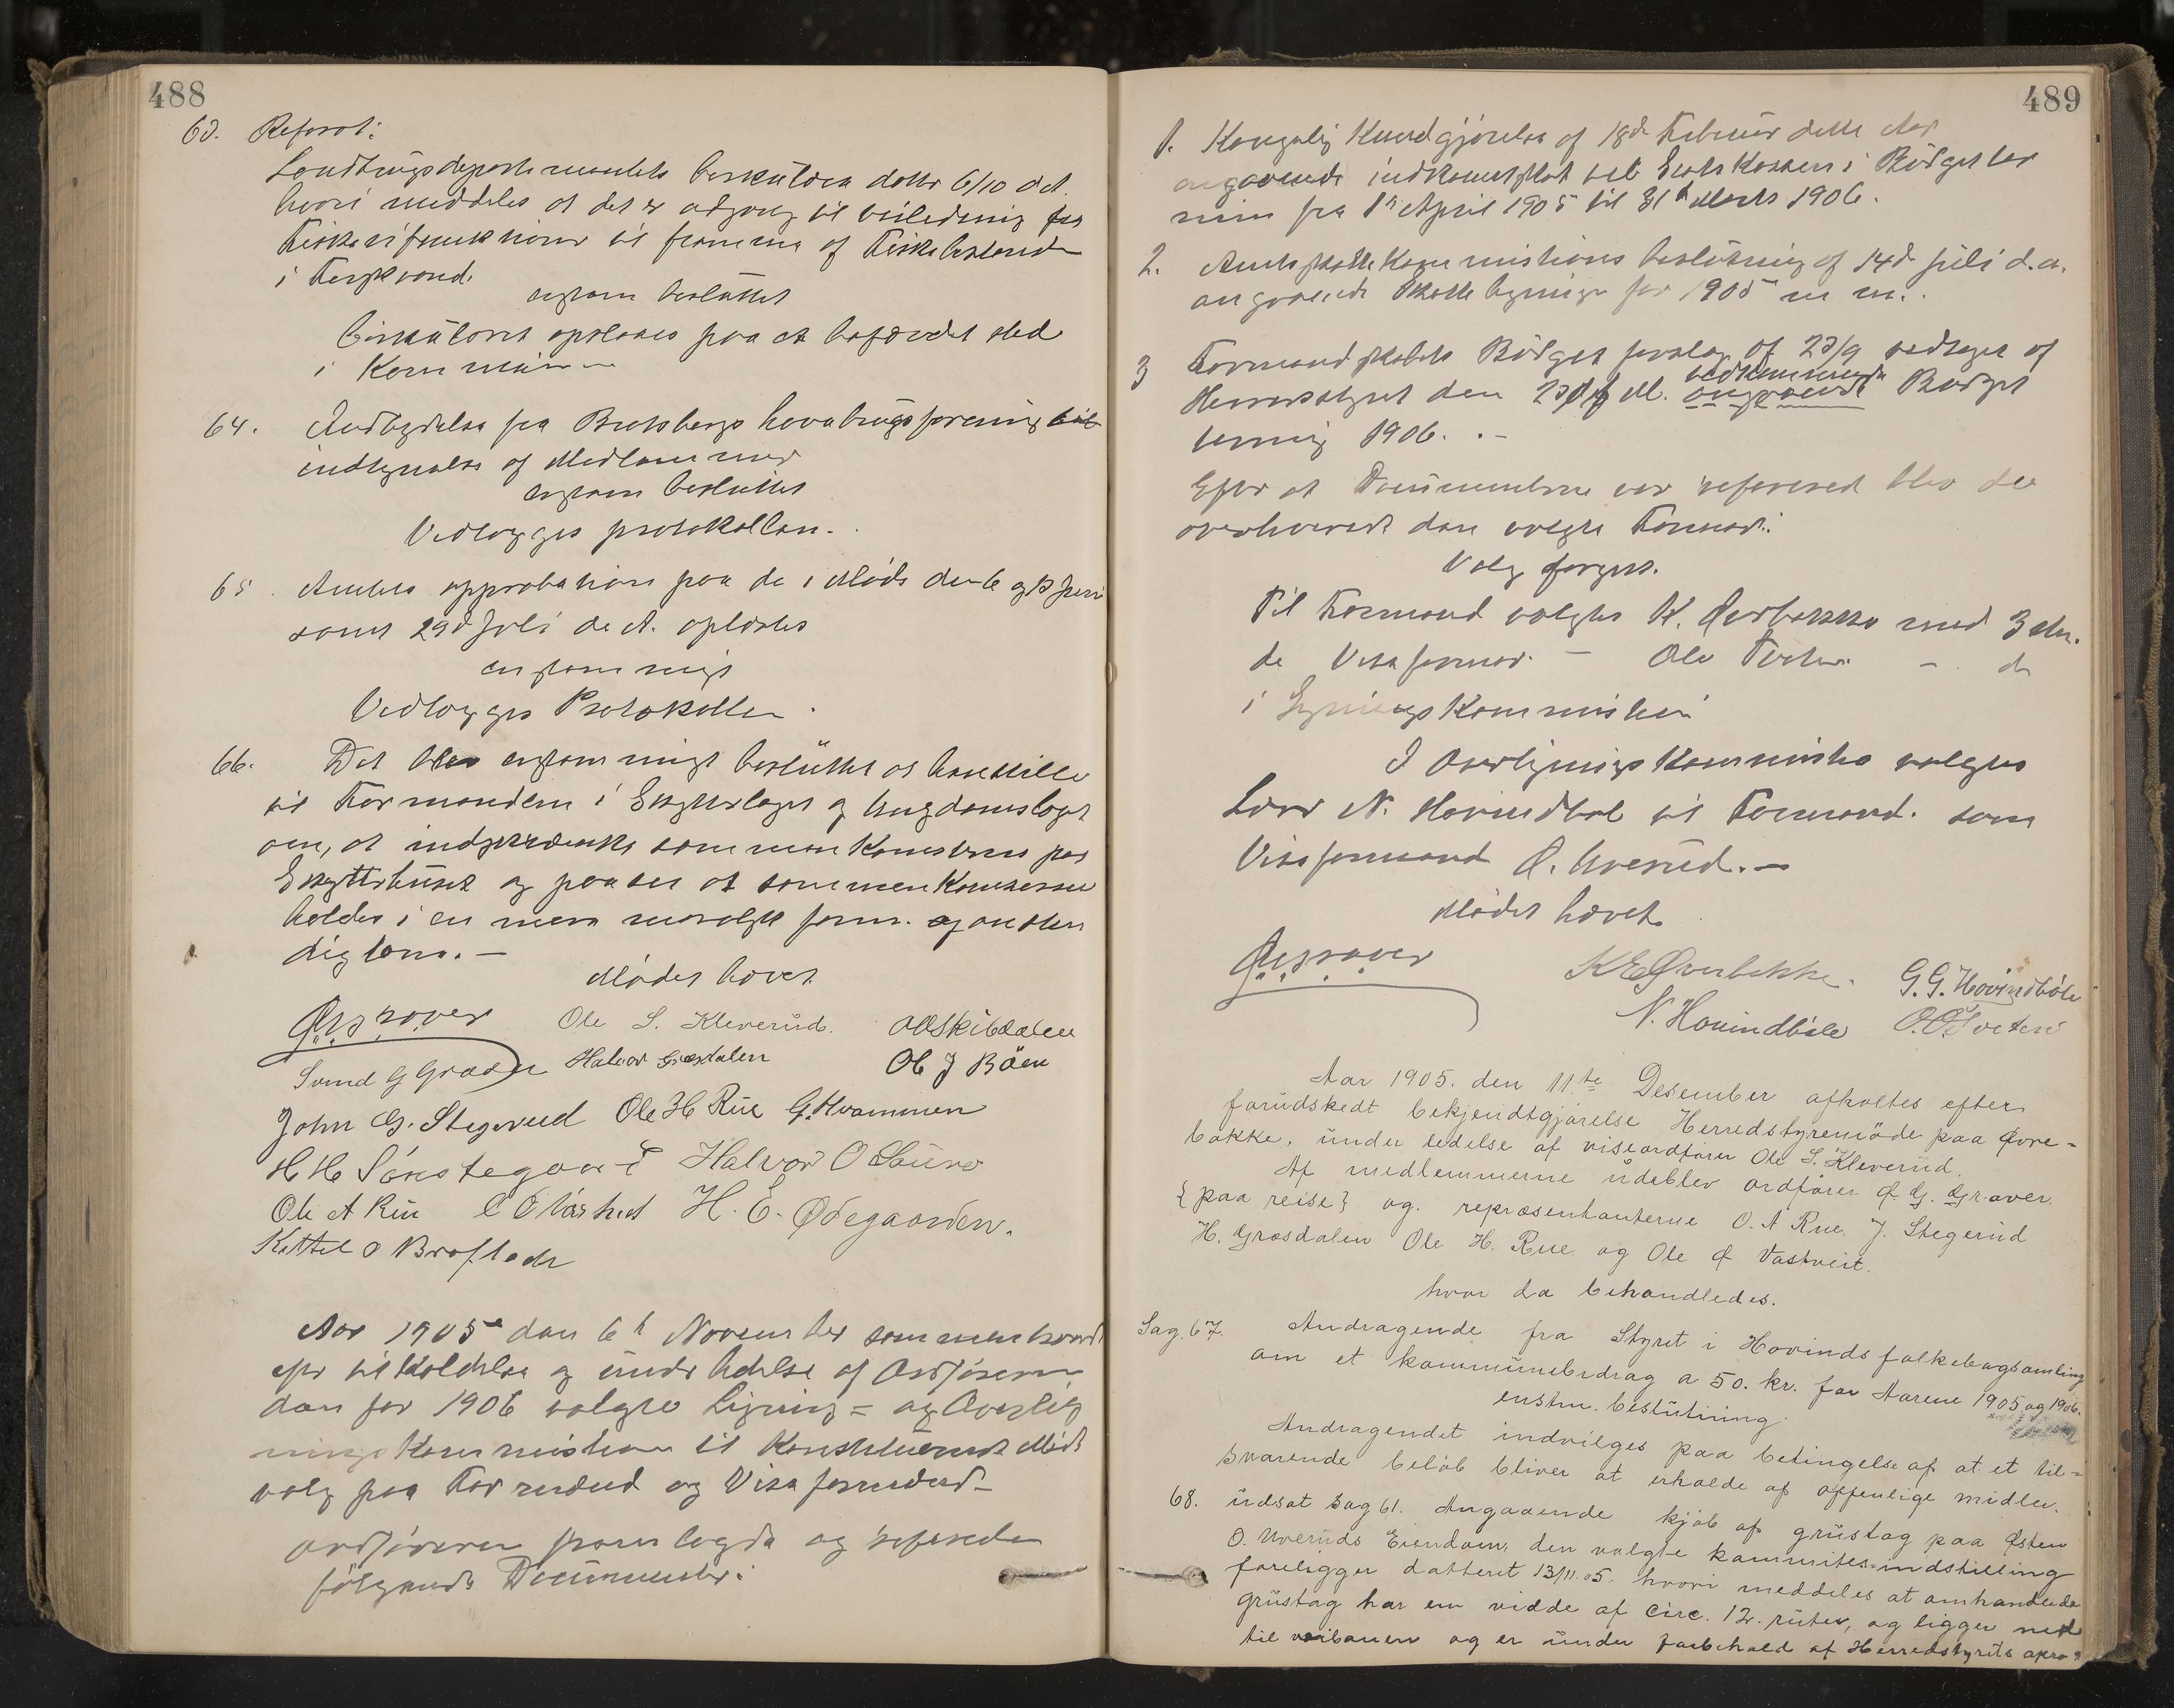 488
63. Referat:
Landbrugsdepartementets Cirkulære dattr 6/10 d. A.
hvori meddeles at det er adgang til veiledning fra
Fiskerifunktionær til fremme af Fiskebestand
i Ferskvand.
enstem besluttet
Cirkulæret opslaaes paa et befærdet sted
i Kommunen
64. Indbydelse fra Bratsbergs havebrugsforening til
indtegnelse af Medlemmer
enstem besluttet
Vedlægges protokollen.
65. Amtets approbation paa de i Møde den 6 og 13 Juni
samt 29d Juli d. A. oplæstes
enstemmigt
Vedlægges Protokollen.
66. Det blev enstemmigt besluttet at henstille
til Formanden i Skytterlaget og Ungdomslaget
om, at indskrænke sammenkomsterne paa
Skytterhuset og paase at sammenkomsterne
holdes i en mere moralsk form. og anstæn
digtere. —
Mødet hævet.
Ø. G. Graver Ole S. Kleverud. O O Skibdalen
Svend G Graver Halvor Græsdalen Ole J Böen
John G. Stegerud Ole H Rue G. Kvammen
H H Sönstegaard Halvor O
Ole A Rue H. E. Ødegaarden.
Kittel O Brofladt
Aar 1905 den 6t November sammentraadte
efter tilkaldelse og under ledelse af Ordføreren
den for 1906 valgte Ligning= og Overlig
ningskommission til konstituerende Møde
valg paa Formænd og Viseformænd —
Ordføreren fremlagde og refererede
følgende Documenter:
489
1. Kongelig Kundgjørelse af 18de Februar dette Aar
angaaende indkomstskat til Statskassen i Büdgetter
min fra 1ste April 1905 til 31te Marts 1906.
2. Amtsskattekommissions beslutning af 14de Juli d. a.
angaaende Skatteligninger for 1905 m m.
3 Formandskabets Büdget forslag af 23/9 vedtaget af
Herredsstyret den f. M. angaaende vedkommende Budget
termin 1906. . —
Efter at Documenterne var refereret blev de
overleveret den valgte Formand.
Valg foregik.
Til Formand valgtes K. Øverbekke med 3 stm.
do Viseformd. — Ole Tveten — do
i Ligningskommission
I Overligningskommission valgtes
Lærer N. Hovindbøle til Formand. som
Viseformand Ø. Uverud. —
Mødet hævet.
Ø. G. Graver K E Øverbekke. G. G. Hovindböle
N. Hovindböle O. O. Tveten
Aar 1905. den 11te Desember afholtes efter
forudskedt bekjendtgjørelse Herredstyremöde paa Øvre=
bøkke, ünder ledelse af viseordfører Ole S. Kleverüd.
Af medlemmerne üdeblev ordfører Ø. G. Graver.
{paa reise} og. repræsentanterne O. A Rue. J. Stegerüd
H. Græsdalen Ole H. Rue og Ole Ø Vastveit.
hvor da behandledes.
Sag. 67. Andragende fra Styret i Hovinds folkebogsamling
om et kommünebidrag a 50. kr. for Aarene 1905 og 1906.
enstm. beslütning.
Andragendet indvilges paa betingelse af at et til=
svarende belöb bliver at erholde af offenlige midler.
68. üdsat Sag 61. Angaaende kjöb af grüstag paa Østen
O. Uverüds Eiendom, den valgte kommites=indstilling
foreligger datteret 13/11. 05. hvori meddeles at omhandlede
grüstag har en vidde af circ. 12. rüter, og ligger ned
til veibanen og er ünder forbehold af Herredstyrets apro=